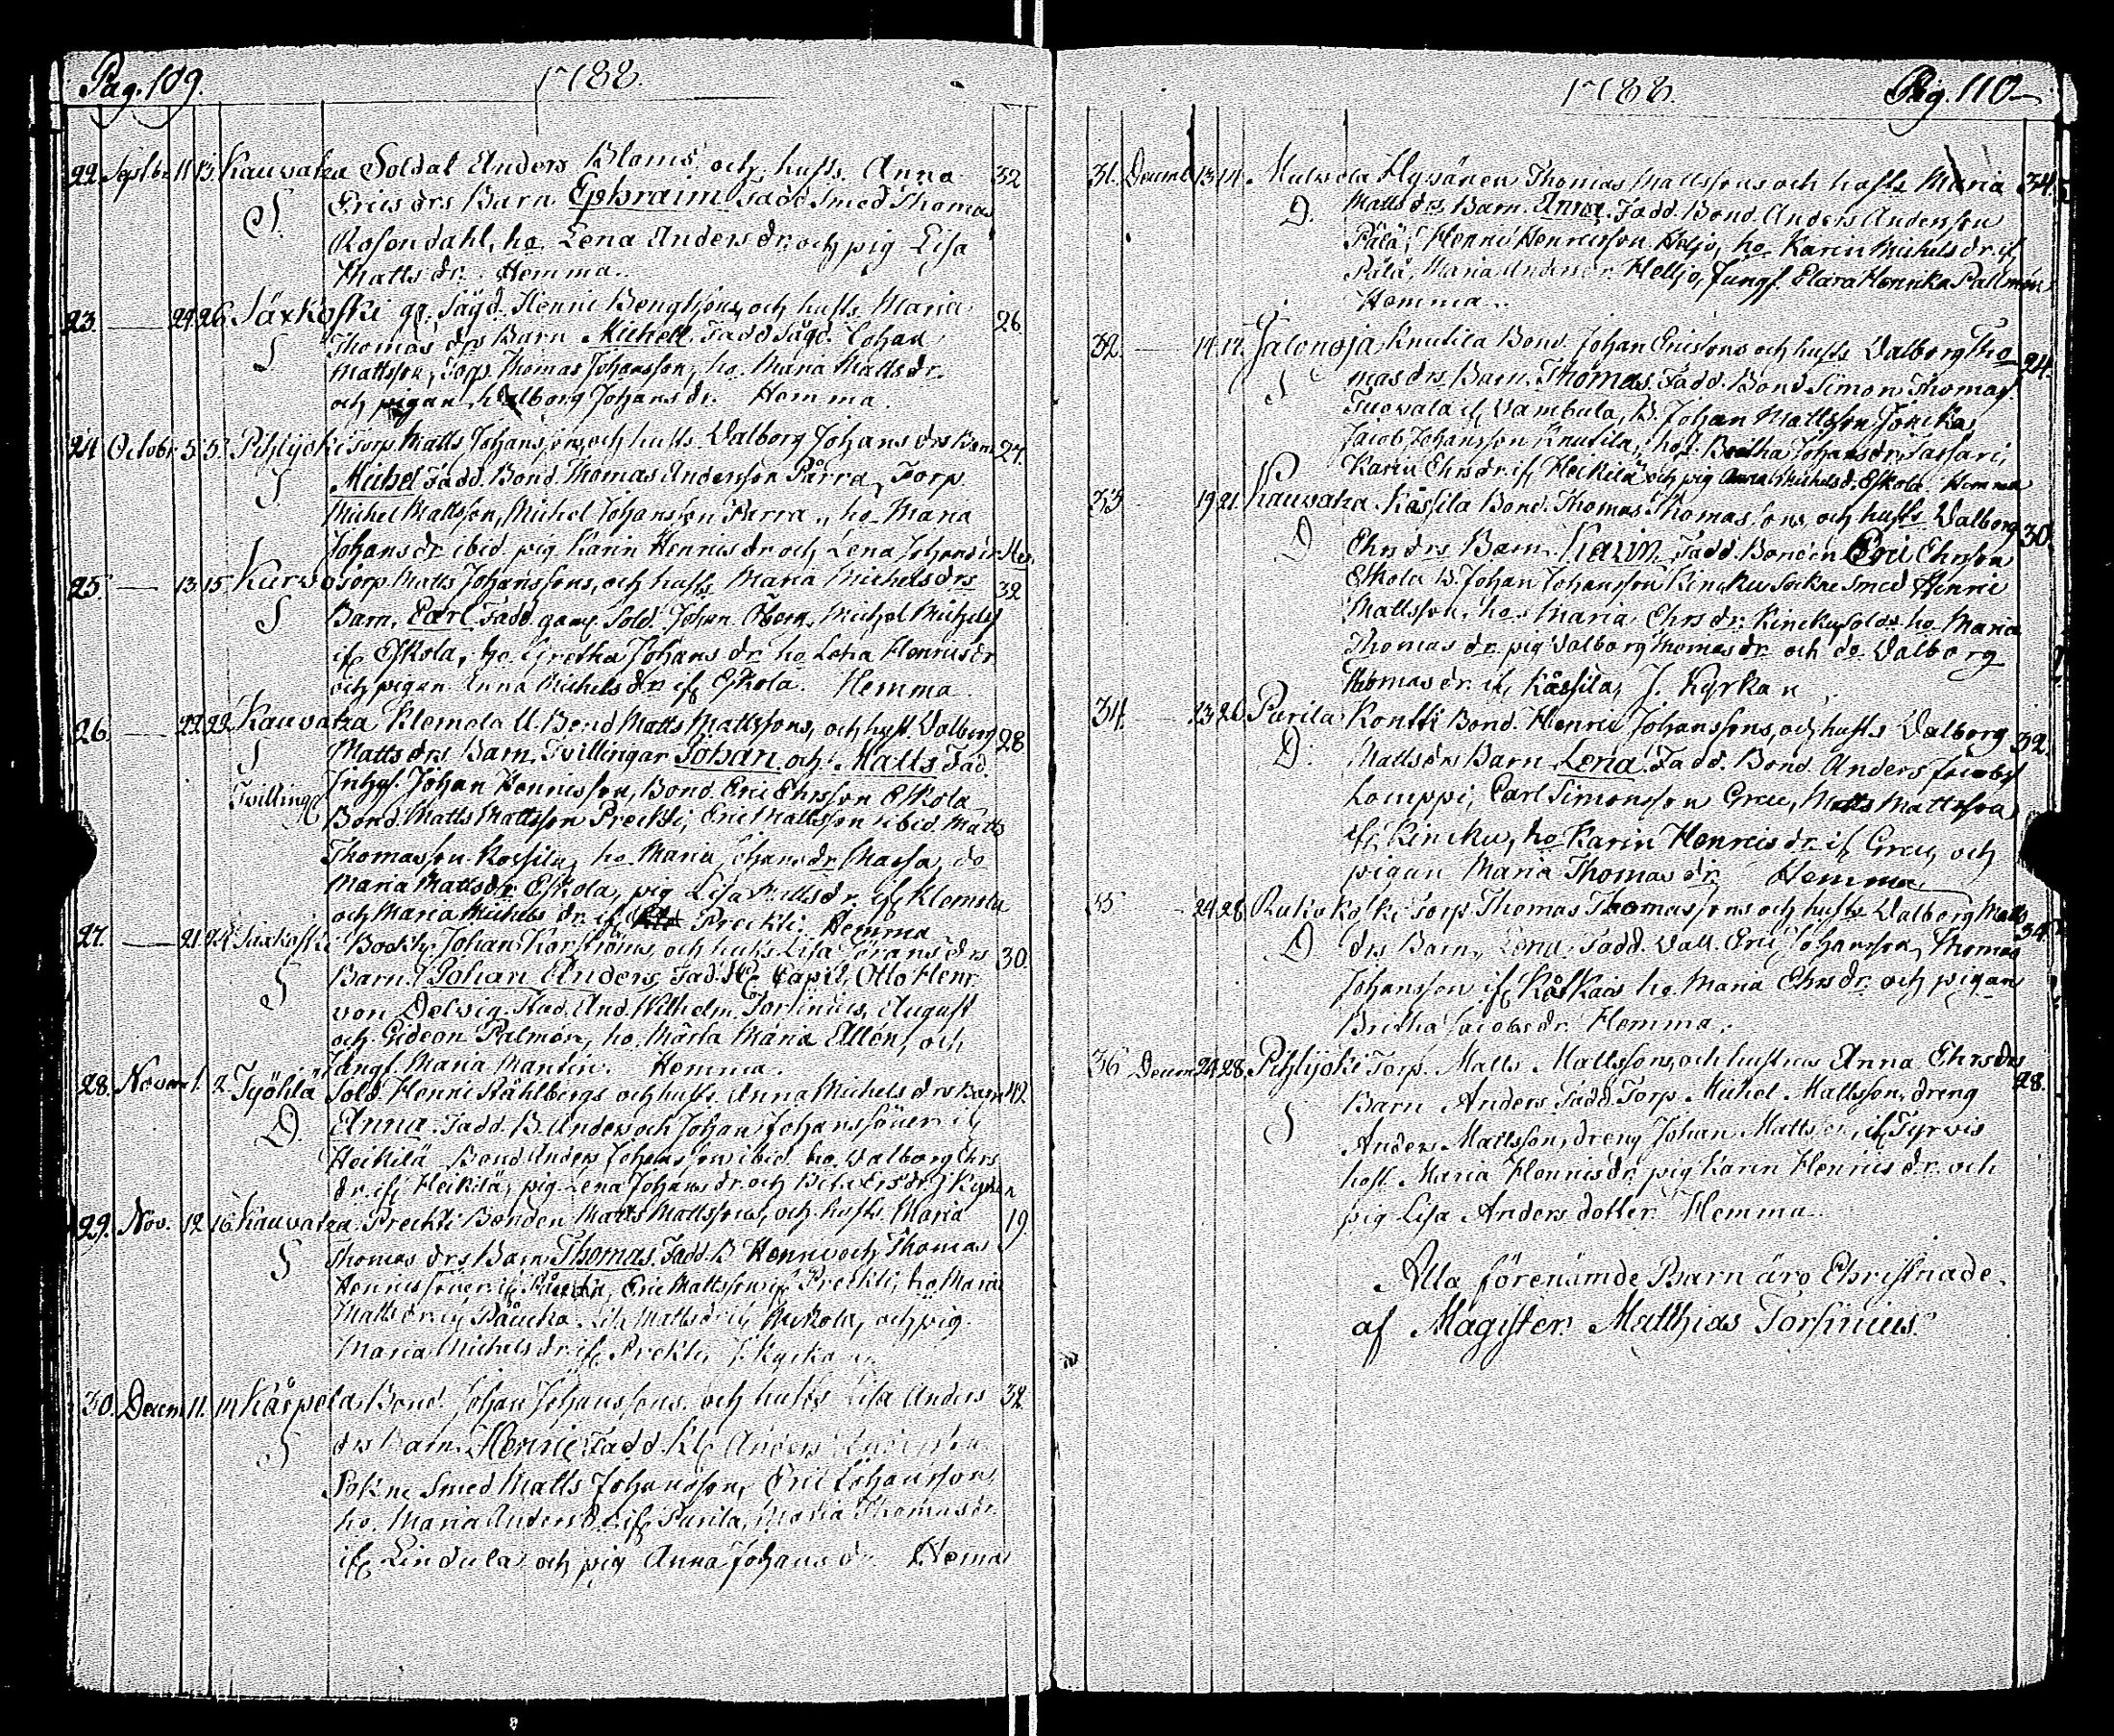 Pag. 109.
1788.
22. Septbr 11 13. Kauvatza Soldat Anders Bloms och hustr. Anna 32
S. Erics drs Barn Ephraim Fadd. Smed Thomas
Rosendahl, ho. Lena Anders dr. och pig. Lisa
Matts dr. Hemma.
23. — 24. 26. Säxkoski gs. Henric Bengtsons och hustr. Maria 26.
S Thomas drs Barn Michell Fadd Johan
Mattsson, Torp. Thomas Johansson, ho. Maria Matts dr.
och pigan Walborg Johans dr. Hemma.
24 Octobr 5 5 Pihlijoki Torp. Matts Johansons, och hustr. Walborg Johans drs Barn 27.
S Michel Fadd. Bond. Thomas Andersson Pärra, Torp
Michel Mattsson, Michel Johansson Parra, ho. Maria
Johans dr ibid. pig. Karin Henrics dr. och Lena Johans dr
25. — 13. 15. Kurvo Torp. Matts Johanssons, och hustr. Maria Michels drs 32
S Barn, Carl Fadd. gam. Sold. Johan Öberg, Michel Michels
if. Eskola, ho. Gretha Johans dr. ho. Lena Henrics dr
och pigan Anna Michels dr. if. Eskola. Hemma
26. — 22 22 Kauvatza Klemola U. Bond Matts Mattssons, och hust. Walborg 28
S Matts drs. Barn. Tvillingar Johan och Matts Fad.
Tvillingar Johan Henricsson, Bond. Eric Ehrsson Eskola
Bond. Matts Mattsson Preckti, Eric Mattsson ibid. Matts
Thomasson Kossila, ho. Maria Johans dr Massa, do
Maria Matts dr. Eskola, pig. Lisa Matts dr. if. Klemola
och Maria Michels dr. if. Preckti. Hemma
27. — 21. 24 Saxkoski Johan Korströms, och hustr. Lisa Jörans drs 30.
S Barn. Johan Anders, Fad. Capit. Otto Henr.
von Delvig. Stud. And. Wilhelm Forsinius, August
och Gideon Palmén, ho. Märta Maria Allén, och
Jungf. Maria Mantin. Hemma.
28. Novem 1. 2. Työhlä Sold. Henric Ståhlbergs och hustr. Anna Michels drs Barn 42
D. Anna. Fadd. B. Anders och Johan Johanssöner if.
Heikilä Bond Anders Johansson ibid. ho. Walborg Ehrs
dr. if. Heikilä, pig. Lena Johans dr. och Kyrkan
29. Nov. 12 16 Kauvatza Preckti Bonden Matts Mattssons, och hustr. Maria 19.
S Thomas drs Barn Thomas. Fadd. B. Henric och Thomas
Henricssöner if. Eric Mattsson if. Preckti, ho. Maria
Matts dr. if. Matts dr. if. och pig.
Maria Michels dr. if. Preckti J. Kyrkan
30. Decem 11. 14 Kärpela Bond. Johan Johanssons och hustr. Lisa Anders 32
S drs Barn. Henric Fadd. Anders
Sokne Smed Matts Johansson, Eric Johansson
ho. Maria Anders dr. if. Purila, Maria Thomas dr.
if. Lindula och pig. Anna Johans dr. Hema
1788.
Pag. 110
31. Decemb 13. 14. Mulvola Hysären Thomas Mattssons och hustr. Maria 34.
D. Matts drs. Barn. Anna. Fadd. Bond. Anders Andersson
Pälä, Henric Henricsson Heljo, ho. Karin Michels dr. if.
Pälä, Maria Anders dr. Heljo, Jungf. Clara Henrika Palmén
Hemma.
32. — 14. 17. Jalonoja Knutila Bond. Johan Ericsons och hustr. Walborg Tho 24.
S mas drs. Barn. Thomas. Fadd. Bond Simon Thomas
if. Vambula, B. Johan Mattsson
Jacob Johansson Knutila, ho. Johans dr.
Karin Ehrs dr. if. Heikilä och pig Anna Michels d. Eskola Hemma
33 19 21. Kauvatza Kåssila Bond. Thomas Thomassons och hustr. Walborg 30.
D Ehrs drs Barn Karin Fadd. Bonden Eric Ehrsson
Eskola B. Johan Johansson Kincku Sokne Smed Henric
Mattsson, ho. Maria Ehrs dr. Kincku, Sold. ho. Maria
Thomas dr. pig Walborg Thomas dr och do Walborg
Thomas dr. if. Kåssila, J. Kyrkan
34. — 23 26 Purila Kontti Bond. Henric Johanssons, och hustr. Walborg 32.
D. Matts drs Barn Lena. Fadd. Bond. Anders Jacobs
Lomppi, Carl Simonsson Greu, Matts Mattsson
if. Kincku, ho. Karin Henrics dr. if. Greu, och
pigan Maria Thomas dr. Hemma
35 24 28. Rukokoski Torp. Thomas Thomassons och hustr. Walborg Matts 34.
D drs Barn, Lena. Fadd. Wall. Eric Johansson, Thomas
Johansson if. ho. Maria Ehrs dr. och pigan
Britha Jacobs dr. Hemma.
36 Decem 24 28. Pihlijoki Torp. Matts Mattssons, och hustrus Anna Ehrs drs 28.
S Barn Anders Fadd. Torp. Michel Mattsson, dreng
Anders Mattsson, dreng Johan Matts, if. Tyrvis
host. Maria Henrics dr. pig Karin Henrics dr. och
pig Lisa Anders dotter. Hemma.
Alla förenämde Barn äro Christnade
af Magister Matthias Forsinius.